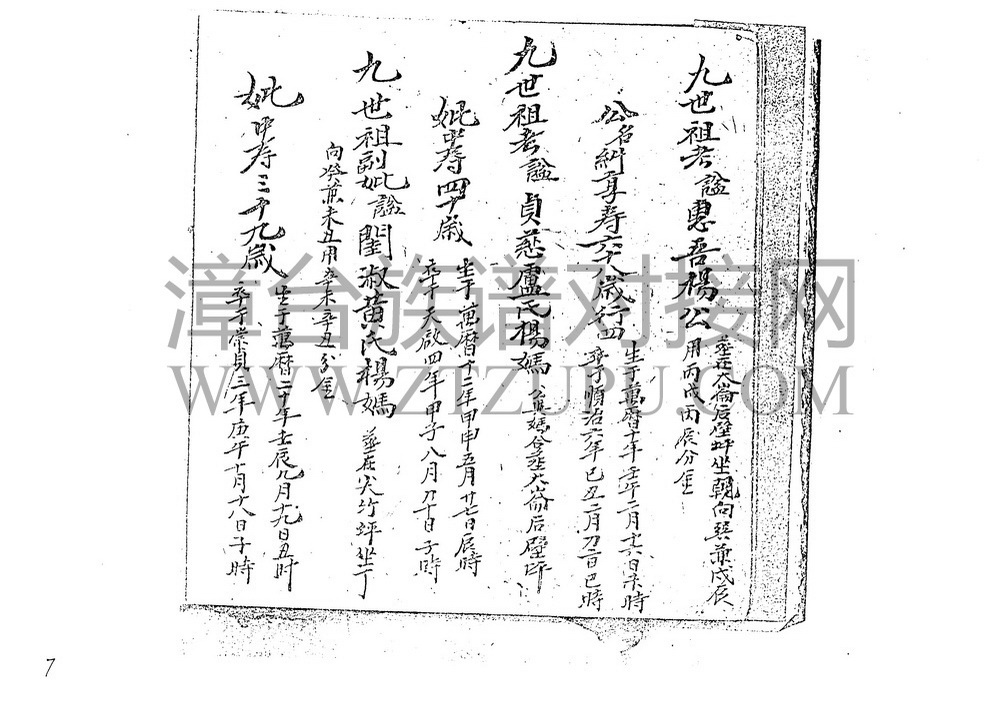 九世祖考謚惠吾楊公
葬在大崙后壁坪坐乾向巽兼戌辰
用丙戌丙辰分金
公名糾享寿六十八歲行四
生于萬曆十年壬午二月十六日未時
卒于順治六年己丑二月初二日巳時
九世祖考謚貞慈盧氏楊媽
公與媽合葬大崙后壁坪
妣中寿四十歲
生于萬曆十二年甲申五月廿七日辰時
卒于天啟四年甲子八月初十日子時
九世祖副妣謚閨淑黃氏楊媽
葬在尖竹坪坐丁
向癸兼未丑用辛未辛丑分金
妣中寿三十九歲
生于萬曆二十年壬辰九月十九日丑時
卒于崇貞三年庚午十月十八日子時
漳台族谱对接网
WWW.ZTZUPU.COM
7